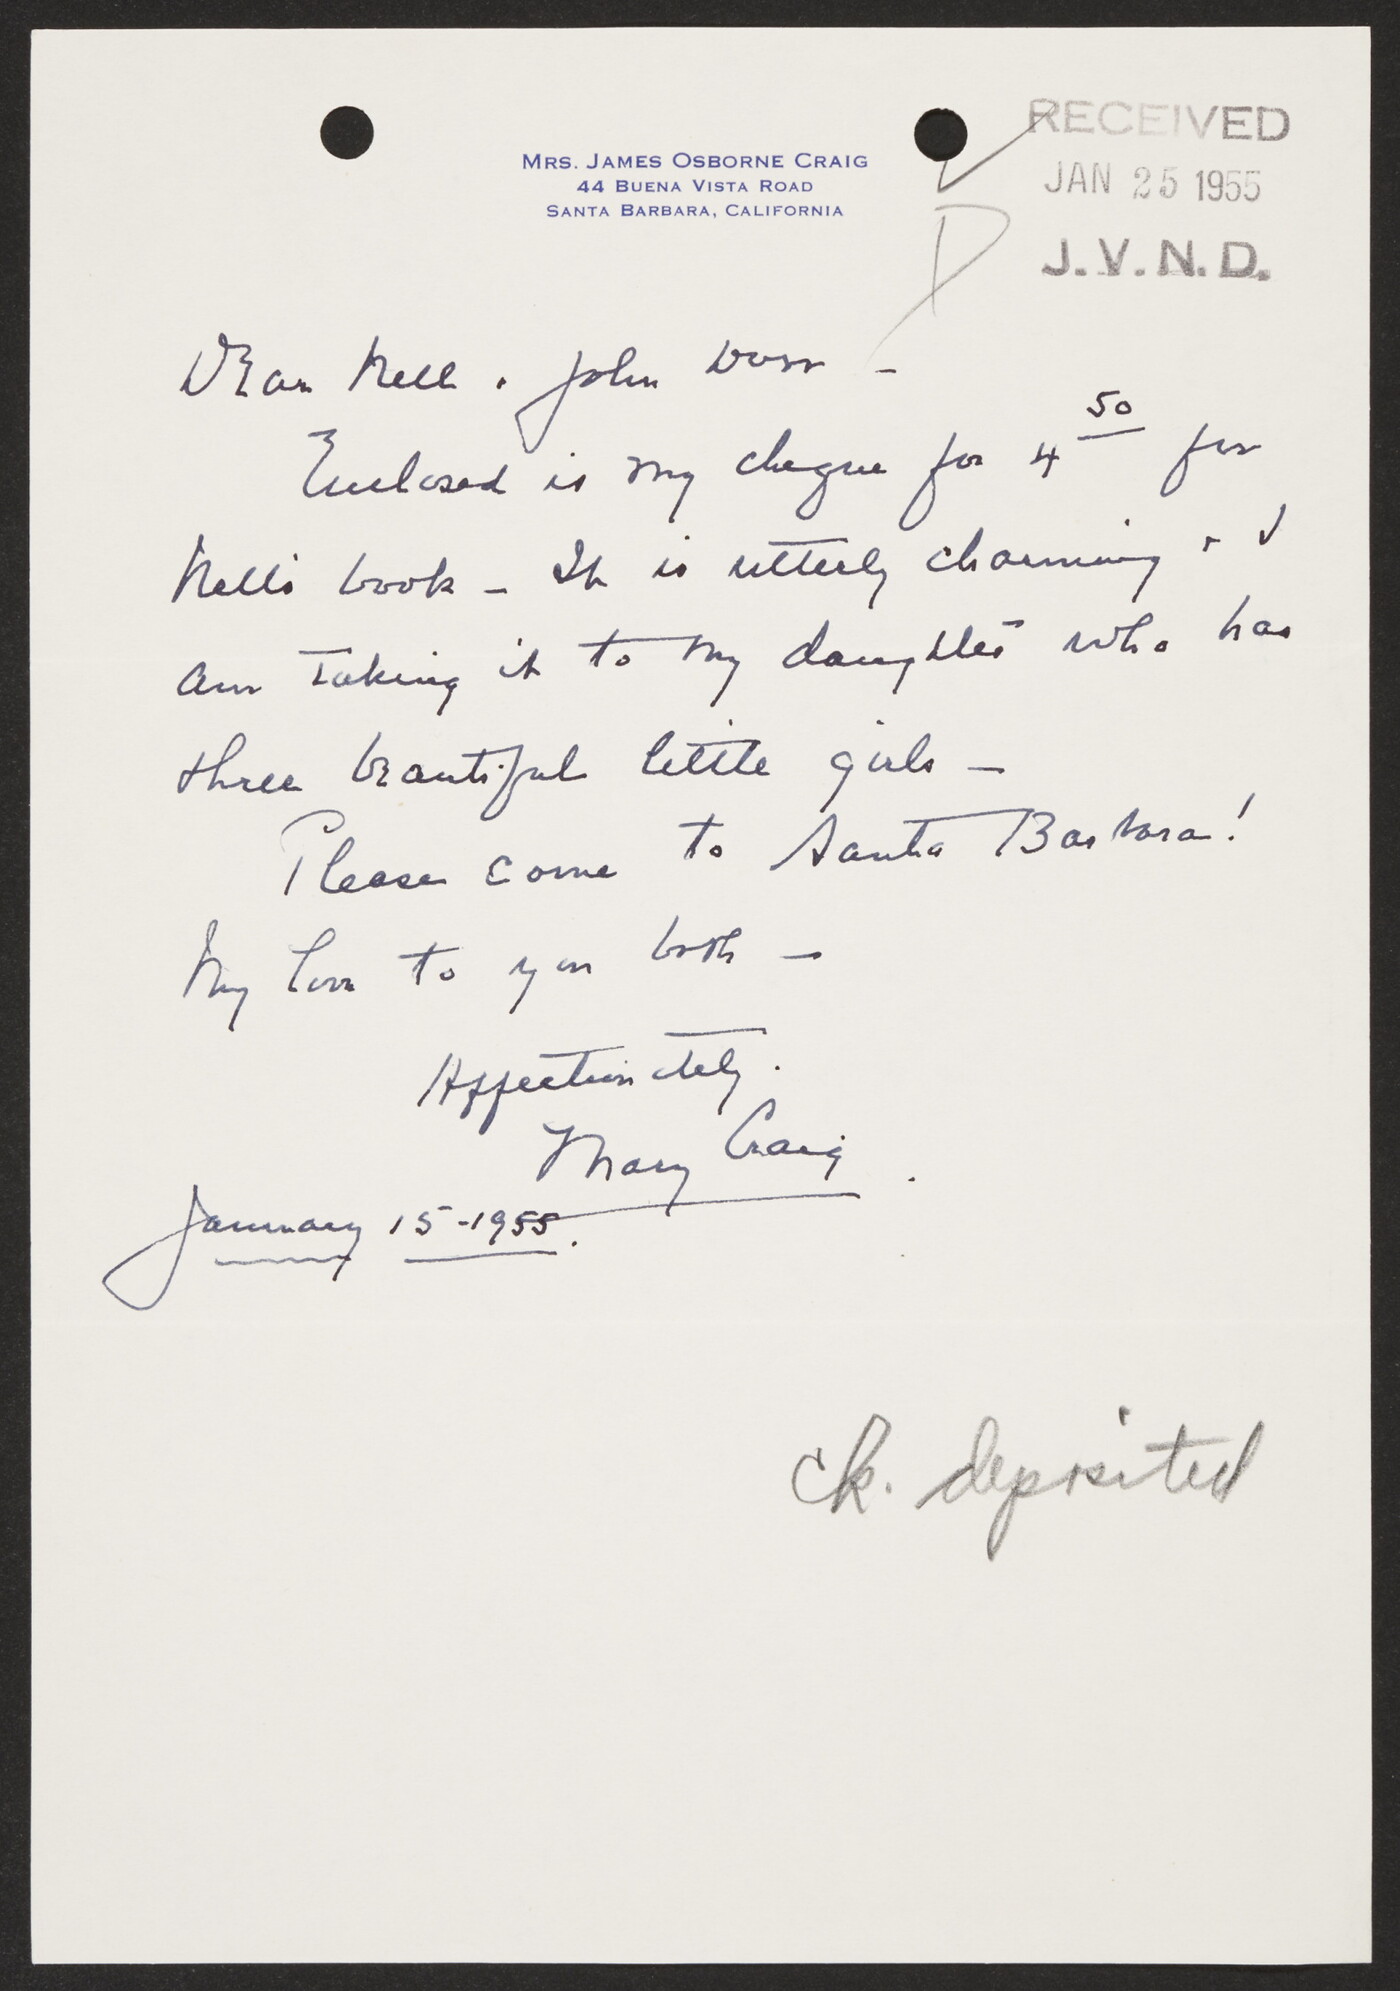 MRS. JAMES OSBORNE CRAIG
44 BUENA VISTA ROAD
SANTA BARBARA, CALIFORNIA
RECEIVED
JAN 25 1955
J.V.N.D.
D
Dear Nell + John Dorr -
Enclosed is my cheque for 4 50 for
Nell's book - It is utterly charming + I
am taking it to my daughter who has
three beautiful little girls -
Please come to Santa Barbara!
My love to you both -
Affectionately.
Mary Craig.
January 15-1955.
ck. deposited